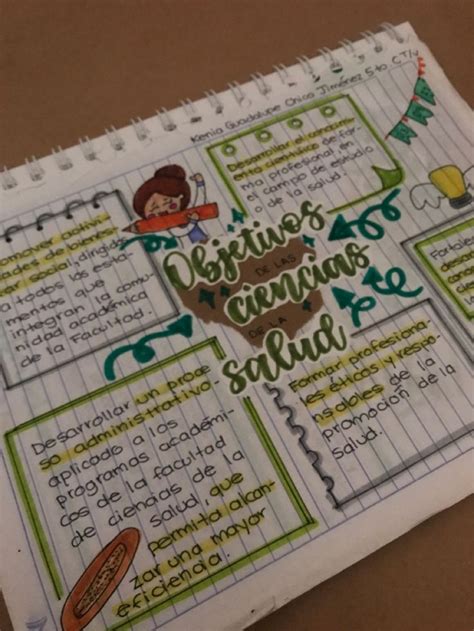 Kenia Guadalupe Chico Jiménez 5to
Desarrollar el
científico de for-
ma profesional en
el campo de estudio
o de la salud.
activi-
dades de bienes-
tar social, dirigidos
a todos los esta-
mentos que
integran la comu-
nidad académica
de la Facultad.
Objetivos
DE LAS
ciencias
DE LA
salud
Formar profesiona-
les éticos y respon-
sables de la
promoción de la
salud.
Desarrollar un proce-
so administrativo
aplicado a los
programas académi-
cos de la facultad
de ciencias de la
salud, que
permita alcan-
zar una mayor
eficiencia.